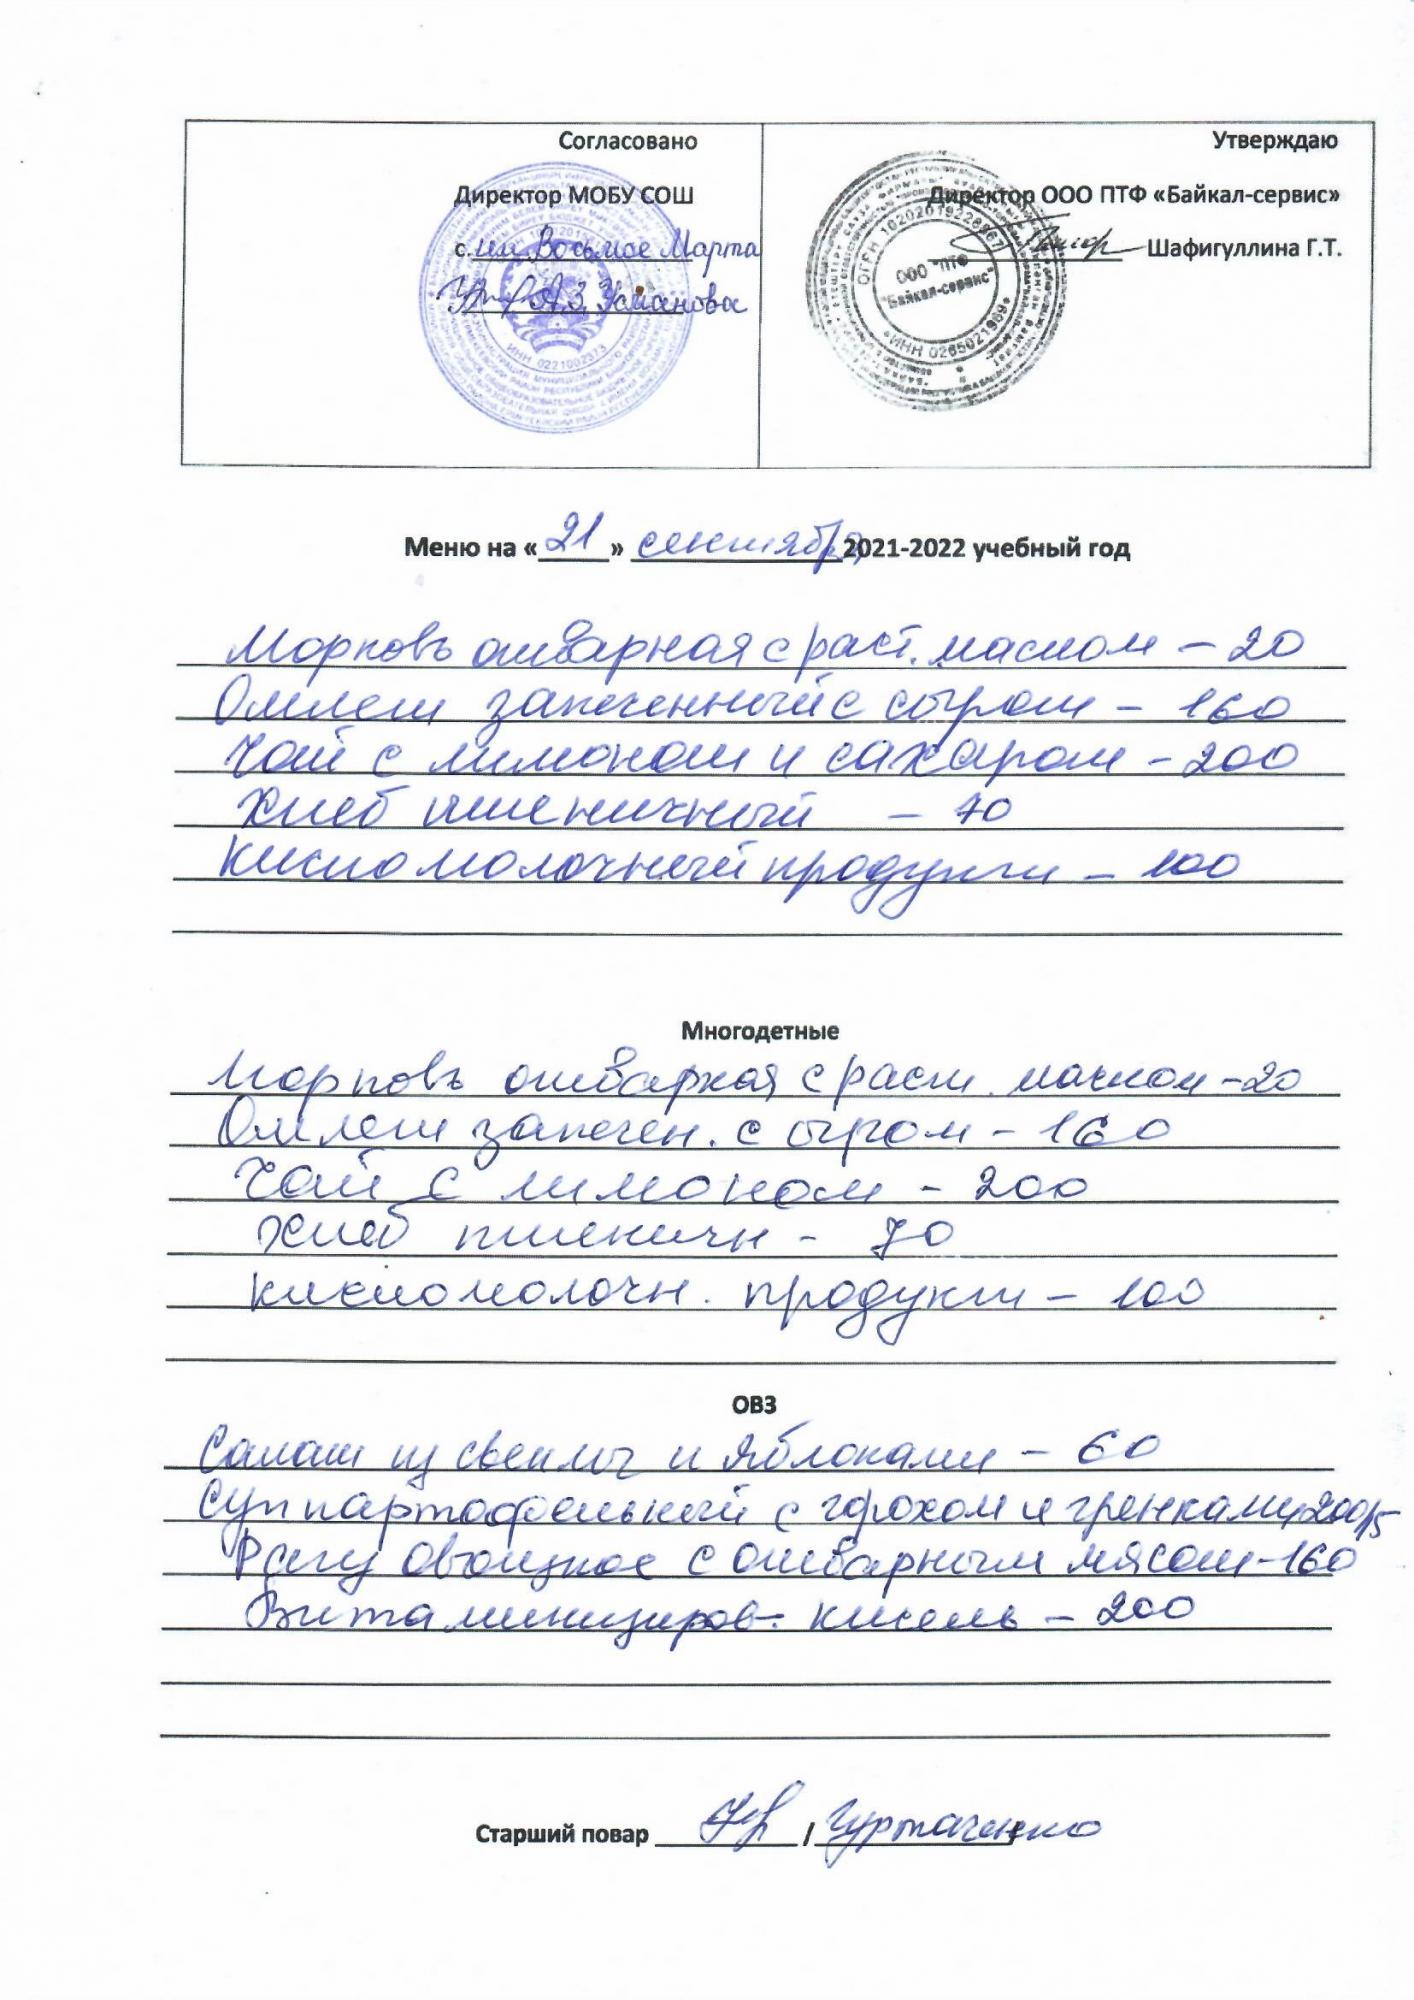 Согласовано
Директор МОБУ СОШ
с. им. Восьмое Марта
А.З. Усманова
Утверждаю
Директор ООО ПТФ «Байкал-сервис»
Шафигуллина Г.Т.
ОГРН 1020201922896
ООО "ПТФ
"Байкал-сервис"
ИНН 0265021969
ИНН 0221002373
Меню на «21» сентября 2021-2022 учебный год
Морковь отварная с раст. маслом – 20
Омлет запеченный с сыром – 160
Чай с лимоном и сахаром – 200
Хлеб пшеничный – 70
Кисломолочный продукт – 100
Многодетные
Морковь отварная с раст. маслом – 20
Омлет запечен. с сыром – 160
Чай с лимоном – 200
Хлеб пшеничн – 70
кисломолочн. продукт – 100
ОВЗ
Салат из свеклы и яблоками – 60
Суп картофельный с горохом и гренками 200/15
Рагу овощное с отварным мясом – 160
Витаминизиров. кисель – 200
Старший повар /